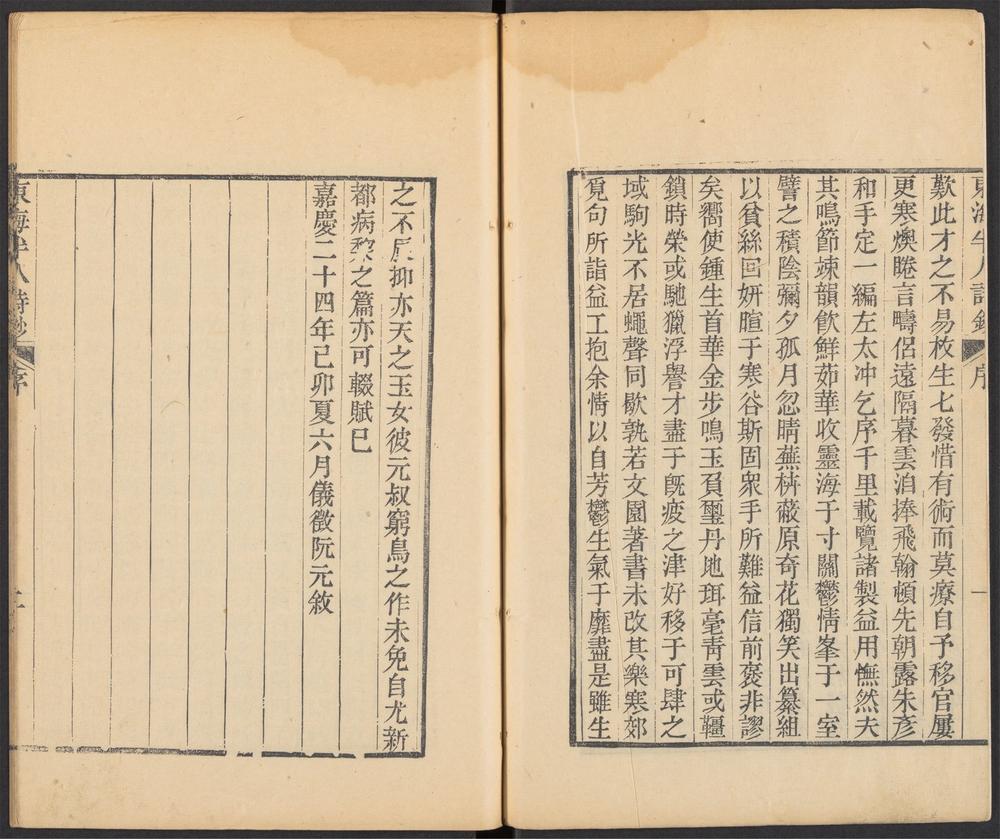 東海半人詩鈔 序 一
歎此才之不易枚生七發惜有術而莫療自予移官屢
更寒燠睠言疇侶遠隔暮雲洎捧飛翰頓先朝露朱彥
和手定一編左太冲乞序千里載覽諸製益用憮然夫
其鳴節竦韻飲鮮茹華收靈海于寸關鬱情峯于一室
譬之積陰彌夕孤月忽晴蕪枿蔽原奇花獨笑出纂組
以貧絲回妍暄于寒谷斯固衆手所難益信前褒非謬
矣嚮使鍾生首華金步鳴玉頁璽丹地珥毫靑雲或韁
鎖時榮或馳獵浮譽才盡于旣疲之津好移于可肆之
域駒光不居蠅聲同歇孰若文園著書未改其樂寒郊
覓句所詣益工抱余情以自芳鬱生氣于靡盡是雖生
之不辰抑亦天之玉女彼元叔窮鳥之作未免自尤新
都病棃之篇亦可輟賦已
嘉慶二十四年己卯夏六月儀徵阮元敘
東海半人詩鈔 序 二